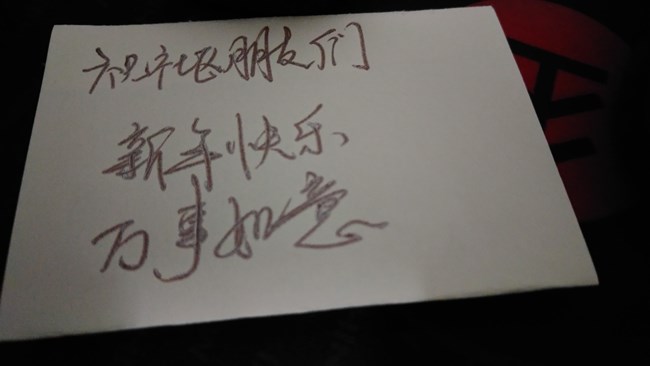 祝平安朋友们
新年快乐
万事如意